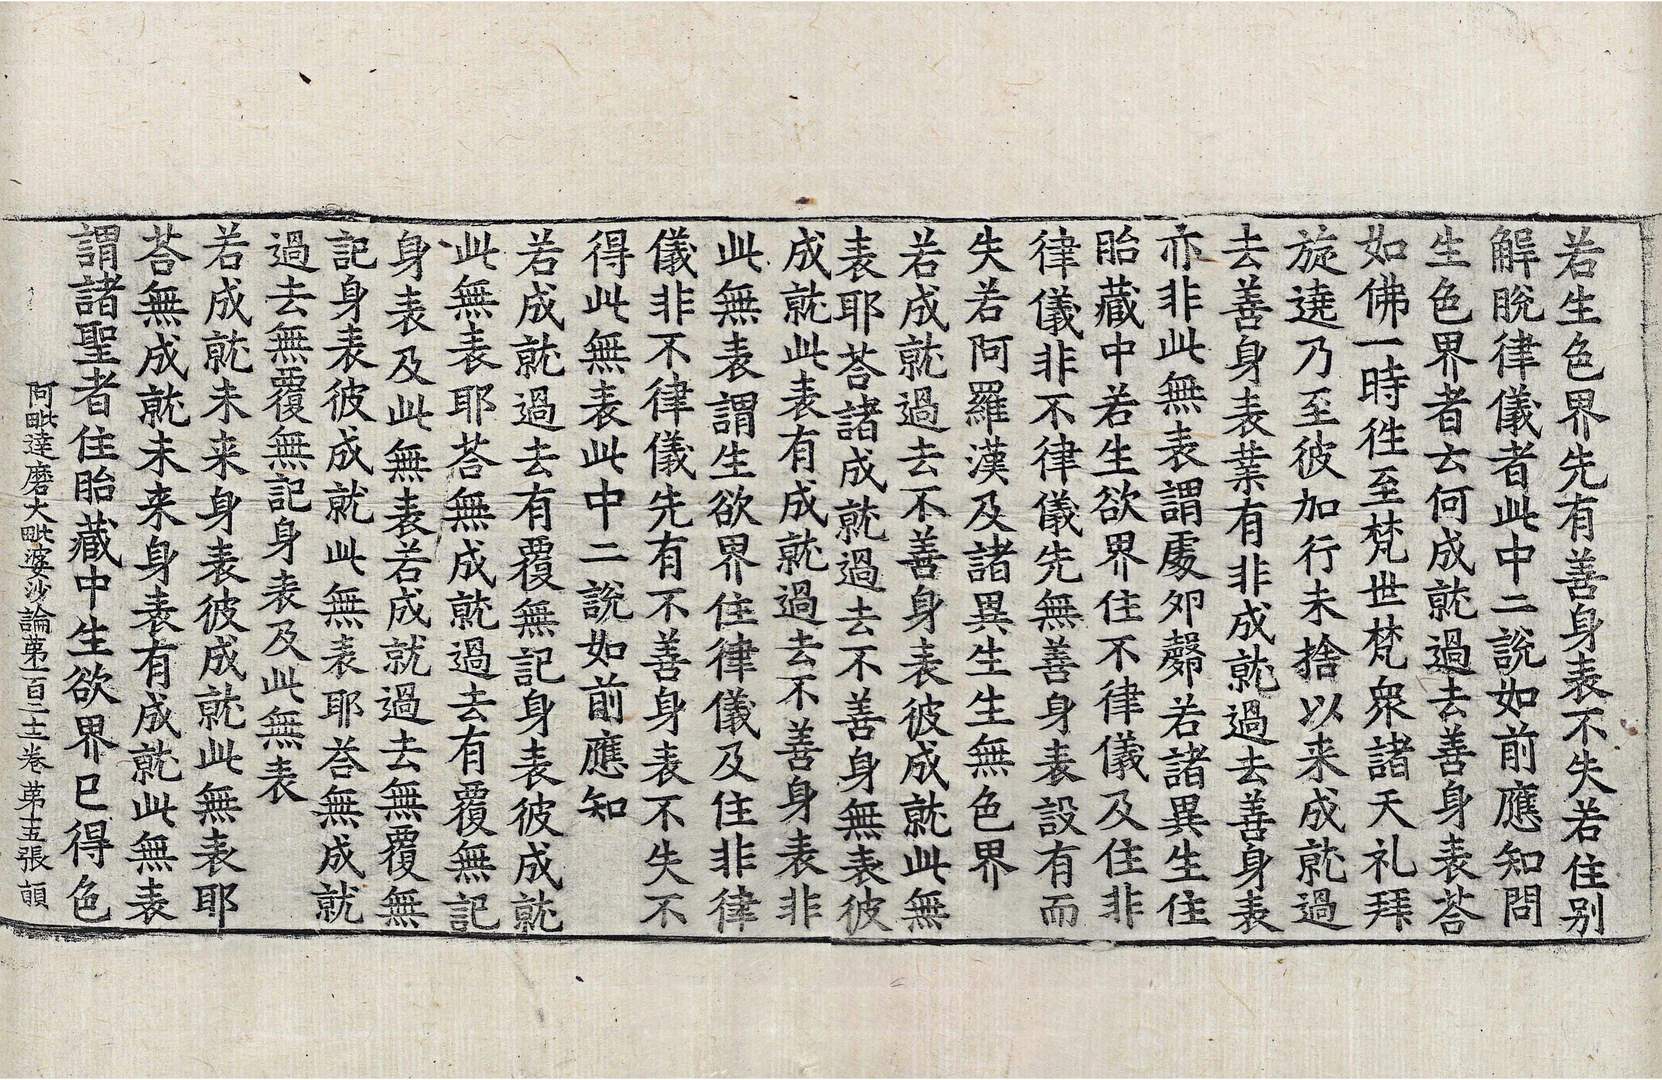 若生色界先有善身表不失若住别
解脫律儀者此中二說如前應知問
生色界者云何成就過去善身表荅
如佛一時徃至梵世梵衆諸天礼拜
旋遶乃至彼加行未捨以来成就過
去善身表業有非成就過去善身表
亦非此無表謂處夘㲉若諸異生住
胎藏中若生欲界住不律儀及住非
律儀非不律儀先無善身表設有而
失若阿羅漢及諸異生生無色界
若成就過去不善身表彼成就此無
表耶荅諸成就過去不善身無表彼
成就此表有成就過去不善身表非
此無表謂生欲界住律儀及住非律
儀非不律儀先有不善身表不失不
得此無表此中二說如前應知
若成就過去有覆無記身表彼成就
此無表耶荅無成就過去有覆無記
身表及此無表若成就過去無覆無
記身表彼成就此無表耶荅無成就
過去無覆無記身表及此無表
若成就未来身表彼成就此無表耶
荅無成就未来身表有成就此無表
謂諸聖者住胎藏中生欲界已得色
阿毗達磨大毗婆沙論第一百二十二卷 第十五張 顛